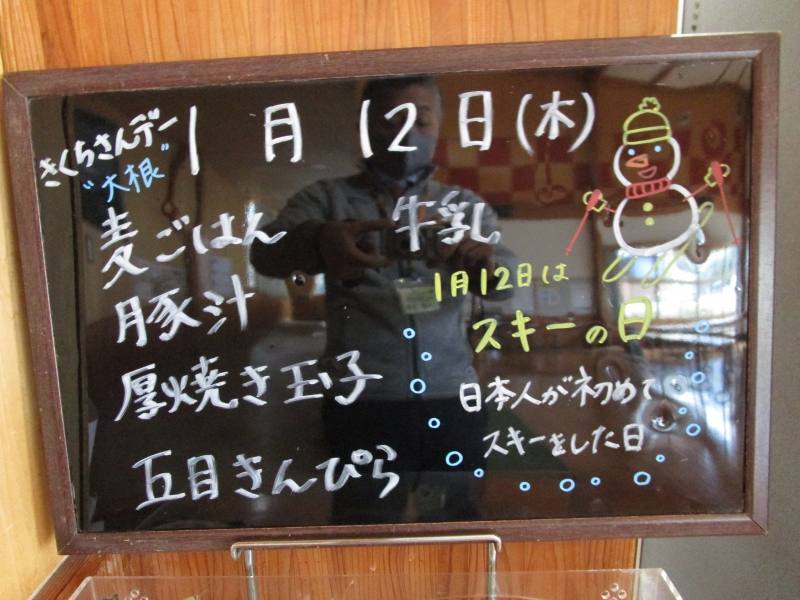 きくちさんデー
"大根"
1月12日(木)
麦ごはん
牛乳
豚汁
厚焼き玉子
五目きんぴら
1月12日は
スキーの日
日本人が初めて
スキーをした日